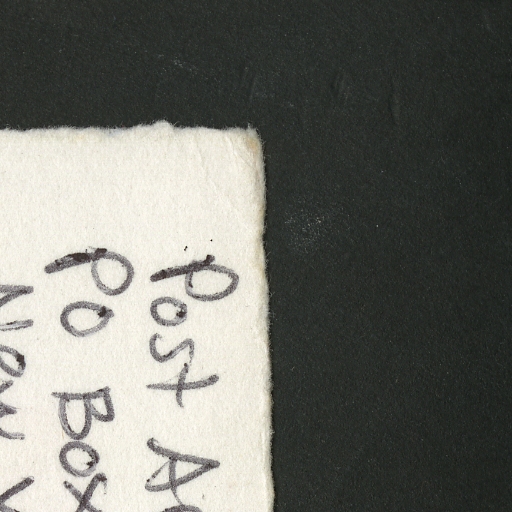 Post A
PO Box
New